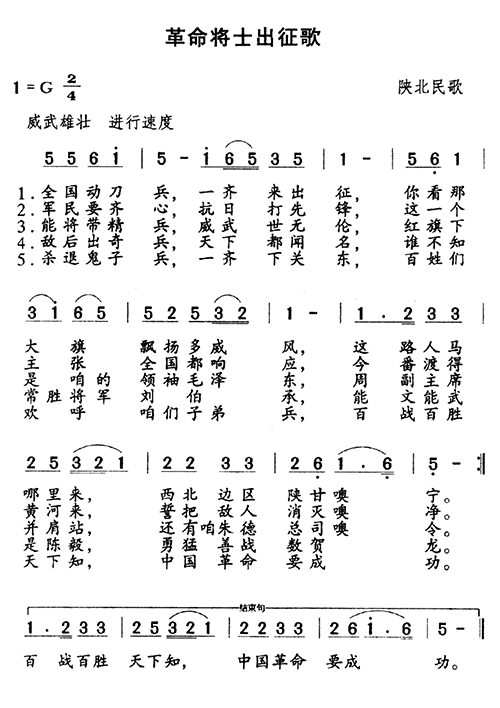 革命将士出征歌
1=G 2/4
陕北民歌
威武雄壮 进行速度
5 5 6 1 | 5 - 1 6 5 3 5 | 1 - | 5 6 1 |
1.全国动刀 兵，一齐 来出 征，你看那
2.军民要齐 心，抗日 打先 锋，这一个
3.能将带精 兵，威武 世无 伦，红旗下
4.敌后出奇 兵，天下 都闻 名，谁不知
5.杀退鬼子 兵，一齐 下关 东，百姓们
3 1 6 5 | 5 2 5 3 2 | 1 - | 1 . 2 3 3 |
大旗 飘扬多威 风，这路人马
主张 全国都响 应，今番渡得
是咱的 领袖毛泽 东，周副主席
常胜将军 刘伯 承，能文能武
欢呼 咱们子弟 兵，百战百胜
2 5 3 2 1 | 2 2 3 3 | 2 6 1 . 6 | 5 - :||
哪里来，西北边区 陕甘噢 宁。
黄河来，誓把敌人 消灭噢 净。
并肩站，还有咱朱德 总司噢 令。
是陈毅，勇猛善战 数贺 龙。
天下知，中国革命 要成 功。
结束句
1 . 2 3 3 | 2 5 3 2 1 | 2 2 3 3 | 2 6 1 . 6 | 5 - ||
百 战百胜 天下知，中国革命 要成 功。